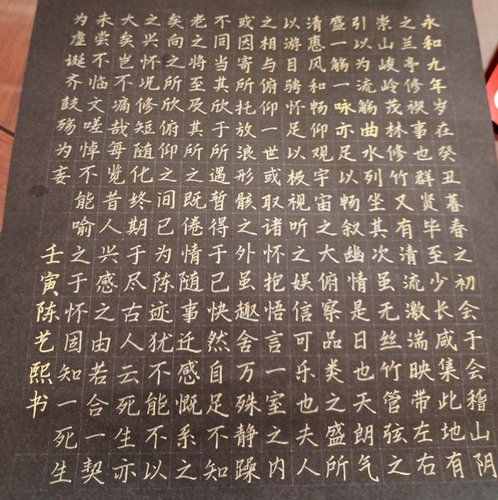 永和九年岁在癸丑暮春之初会于会稽山阴
之兰亭修禊事也群贤毕至少长咸集此地有
崇山峻岭茂林修竹又有清流激湍映带左右
引以为流觞曲水列坐其次虽无丝竹管弦之
盛一觞一咏亦足以畅叙幽情是日也天朗气
清惠风和畅仰观宇宙之大俯察品类之盛所
以游目骋怀足以极视听之娱信可乐也夫人
之相与俯仰一世或取诸怀抱悟言一室之内
或因寄所托放浪形骸之外虽趣舍万殊静躁
不同当其欣于所遇暂得于己快然自足不知
老之将至及其所之既倦情随事迁感慨系之
矣向之所欣俯仰之间已为陈迹犹不能不以
之兴怀况修短随化终期于尽古人云死生亦
大矣岂不痛哉每览昔人兴感之由若合一契
未尝不临文嗟悼不能喻之于怀因知一死生
为虚诞齐鼓殇为妄
壬寅陈艺熙书